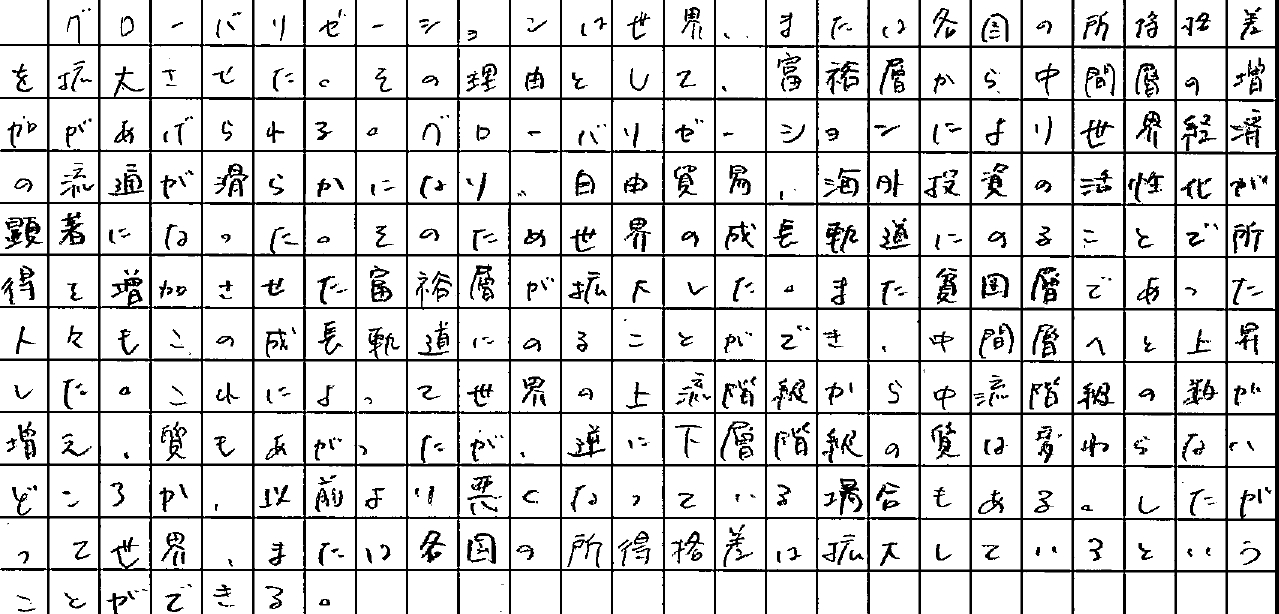 グローバリゼーションは世界、または各国の所得格差
を拡大させた。その理由として、富裕層から中間層の増
加があげられる。グローバリゼーションにより世界経済
の流通が滑らかになり、自由貿易、海外投資の活性化が
顕著になった。そのため世界の成長軌道にのることで所
得を増加させた富裕層が拡大した。また貧困層であった
人々もこの成長軌道にのることができ、中間層へと上昇
した。これによって世界の上流階級から中流階級の数が
増え、質もあがったが、逆に下層階級の質は変わらない
どころか、以前より悪くなっている場合もある。したが
って世界、または各国の所得格差は拡大しているという
ことができる。